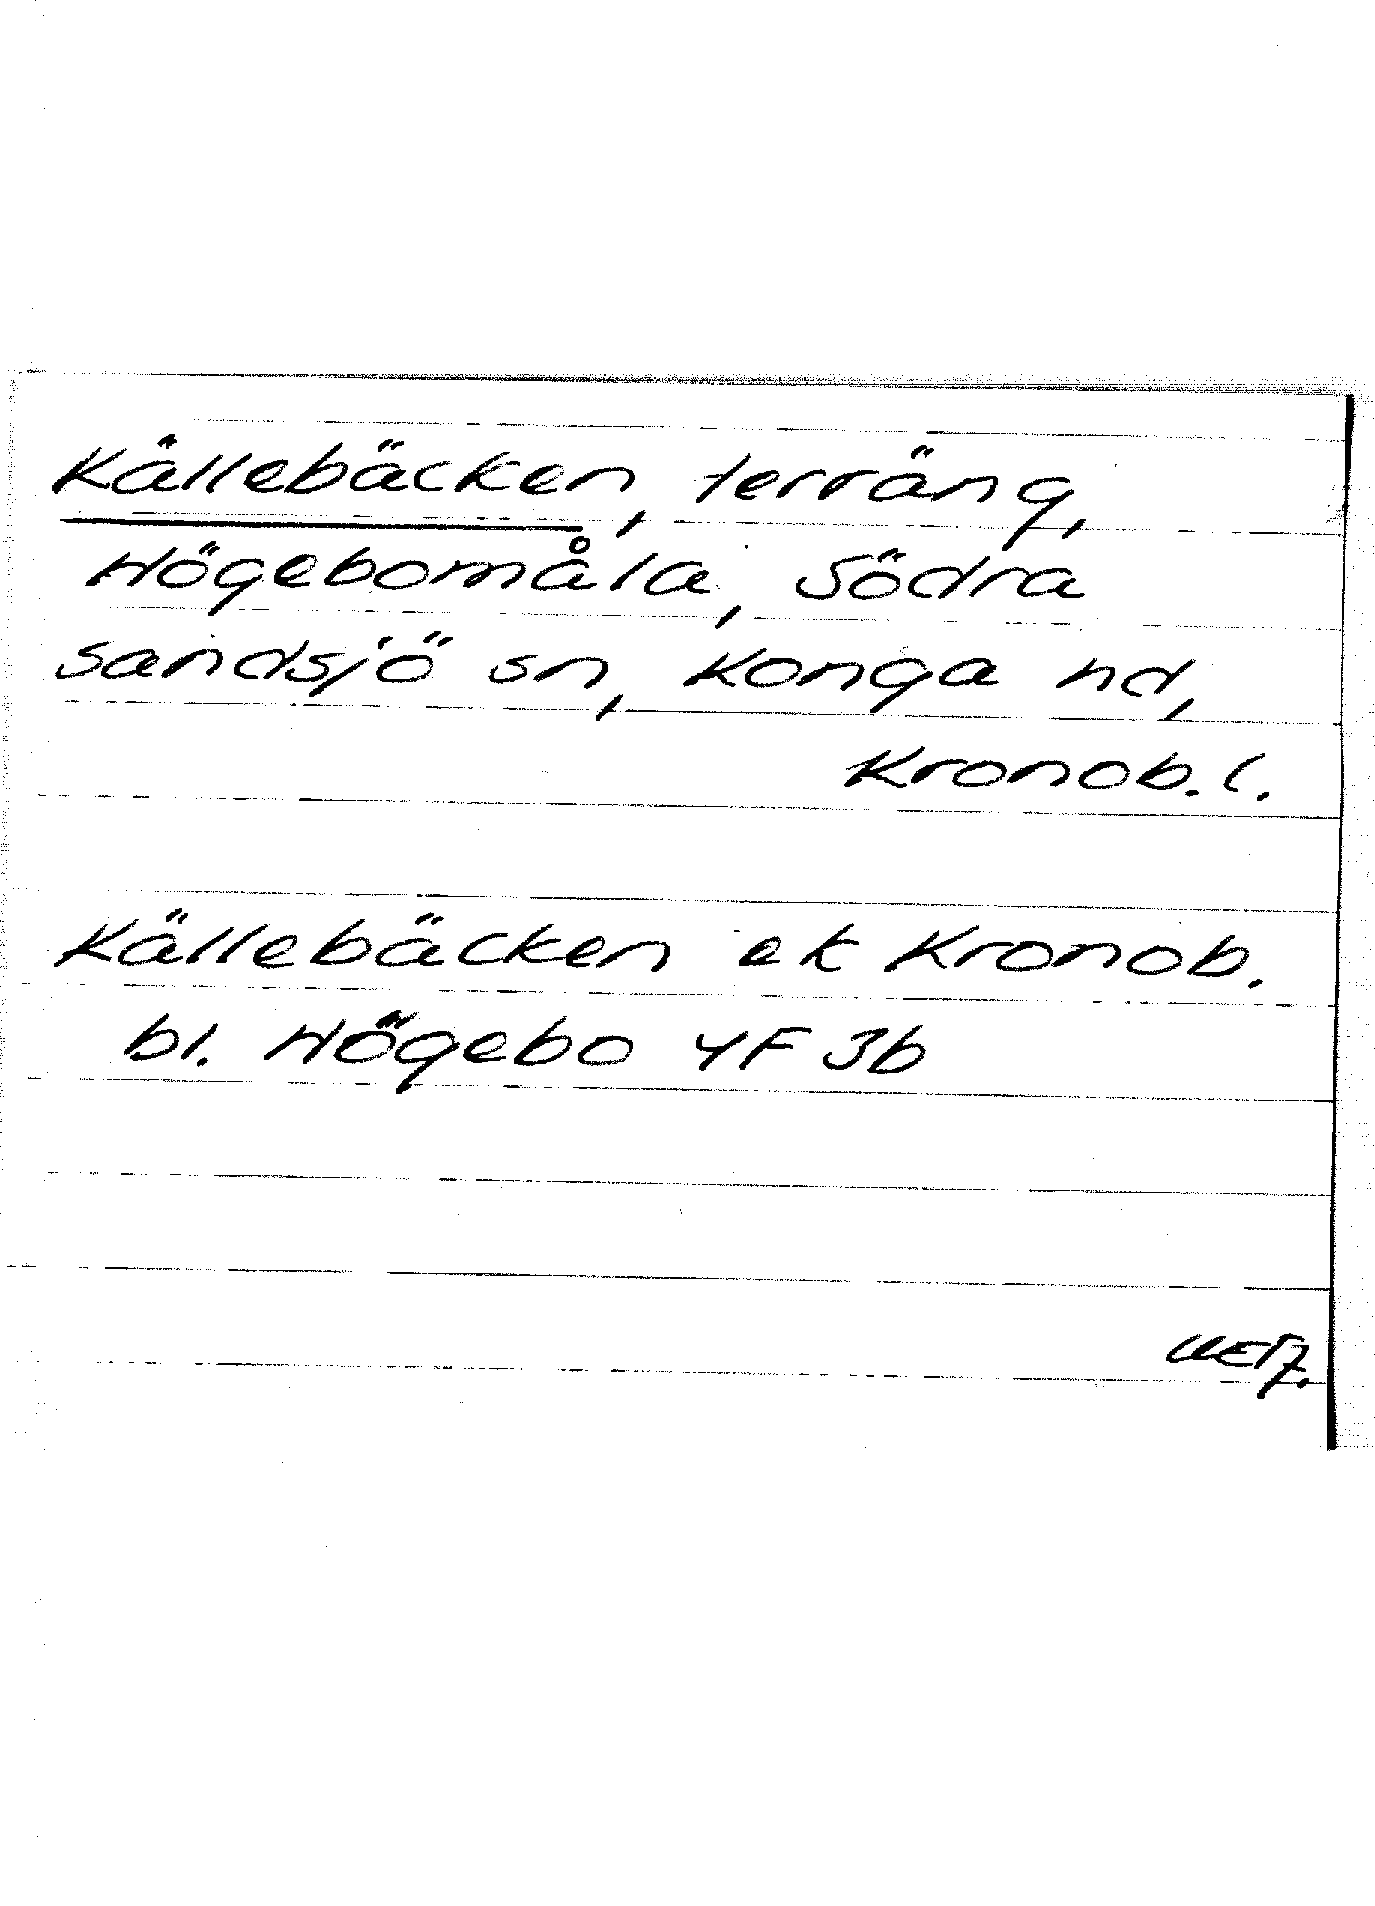 Källebäcken, terräng,
Högebomåla, Södra
Sandsjö sn, Konga hd,
Kronob. l.
Källebäcken ek Kronob.
bl. Högebo 4F 3b